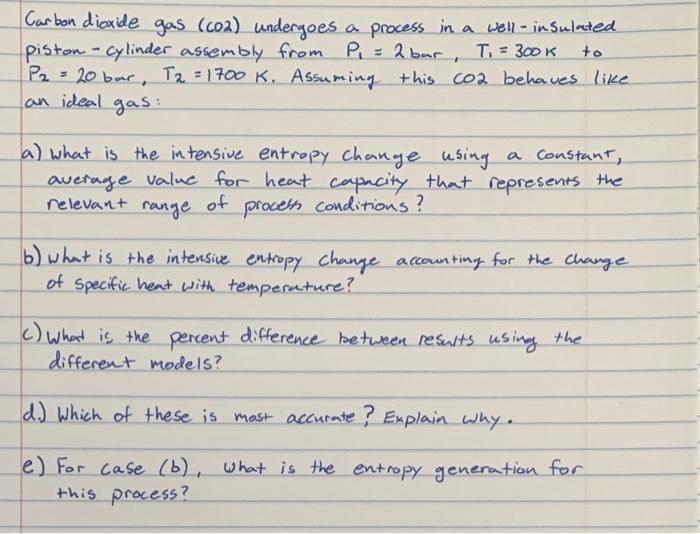 Carbon dioxide gas (CO2) undergoes a process in a well-insulated
piston-cylinder assembly from P1 = 2 bar, T1 = 300K to
P2 = 20 bar, T2 = 1700 K. Assuming this CO2 behaves like
an ideal gas:
a) What is the intensive entropy change using a constant,
average value for heat capacity that represents the
relevant range of process conditions?
b) What is the intensive entropy change accounting for the change
of specific heat with temperature?
c) What is the percent difference between results using the
different models?
d.) Which of these is most accurate? Explain why.
e.) For case (b), what is the entropy generation for
this process?